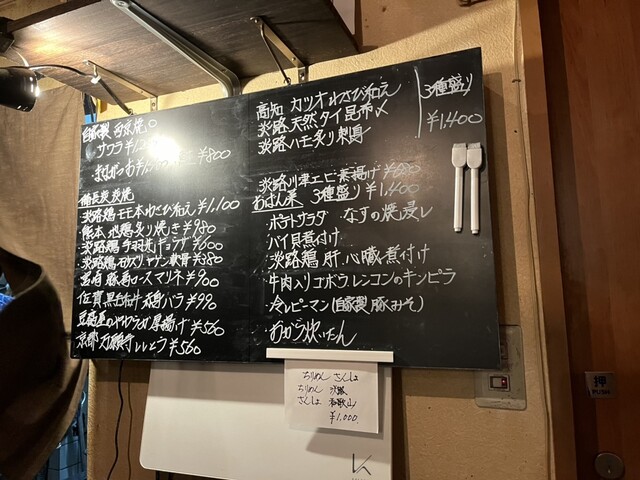 自家製 西京焼
サワラ
まながつお ¥800
備長炭 炭焼
淡路鶏モモ本わさび和え ¥1,100
熊本地鶏炙り焼き ¥980
淡路鶏手羽先ギョーザ ¥600
淡路鶏 ヤゲン軟骨 ¥380
豚肩ロースマリネ ¥900
佐賀黒毛和牛 バラ ¥990
豆腐屋のやわらか厚揚げ ¥560
京都万願寺ししとう ¥560
高知 カツオわさび和え
淡路 天然タイ昆布〆
淡路ハモ炙り刺身
3種盛り
¥1,400
淡路川津エビ素揚げ ¥680
おばん菜 3種盛り ¥1,400
ポテトサラダ なすの焼浸し
バイ貝煮付け
淡路鶏 肝、心臓煮付け
牛肉入りゴボウレンコンのキンピラ
冷しピーマン(自家製豚みそ)
おから炊いたん
ちりめん さんしょ
ちりめん 淡路
さんしょ 和歌山
¥1,000
押